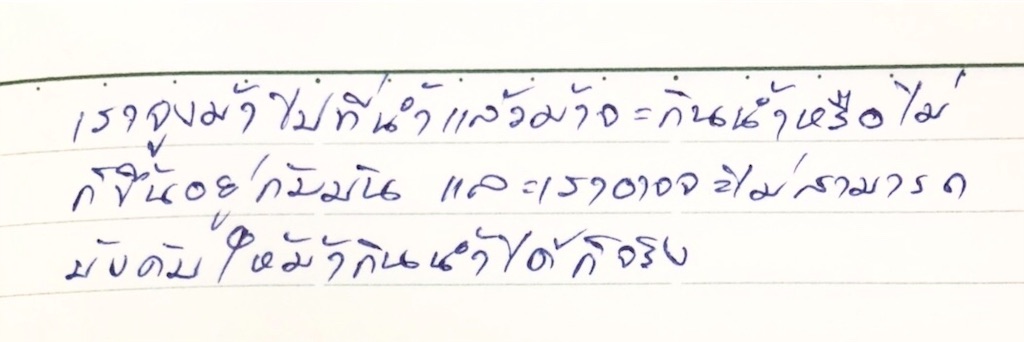 เราจูงม้าไปที่น้ำแล้วม้าจะกินน้ำหรือไม่
ก็ขึ้นอยู่กับมัน และเราอาจจะไม่สามารถ
บังคับให้ม้ากินน้ำได้ก็จริง